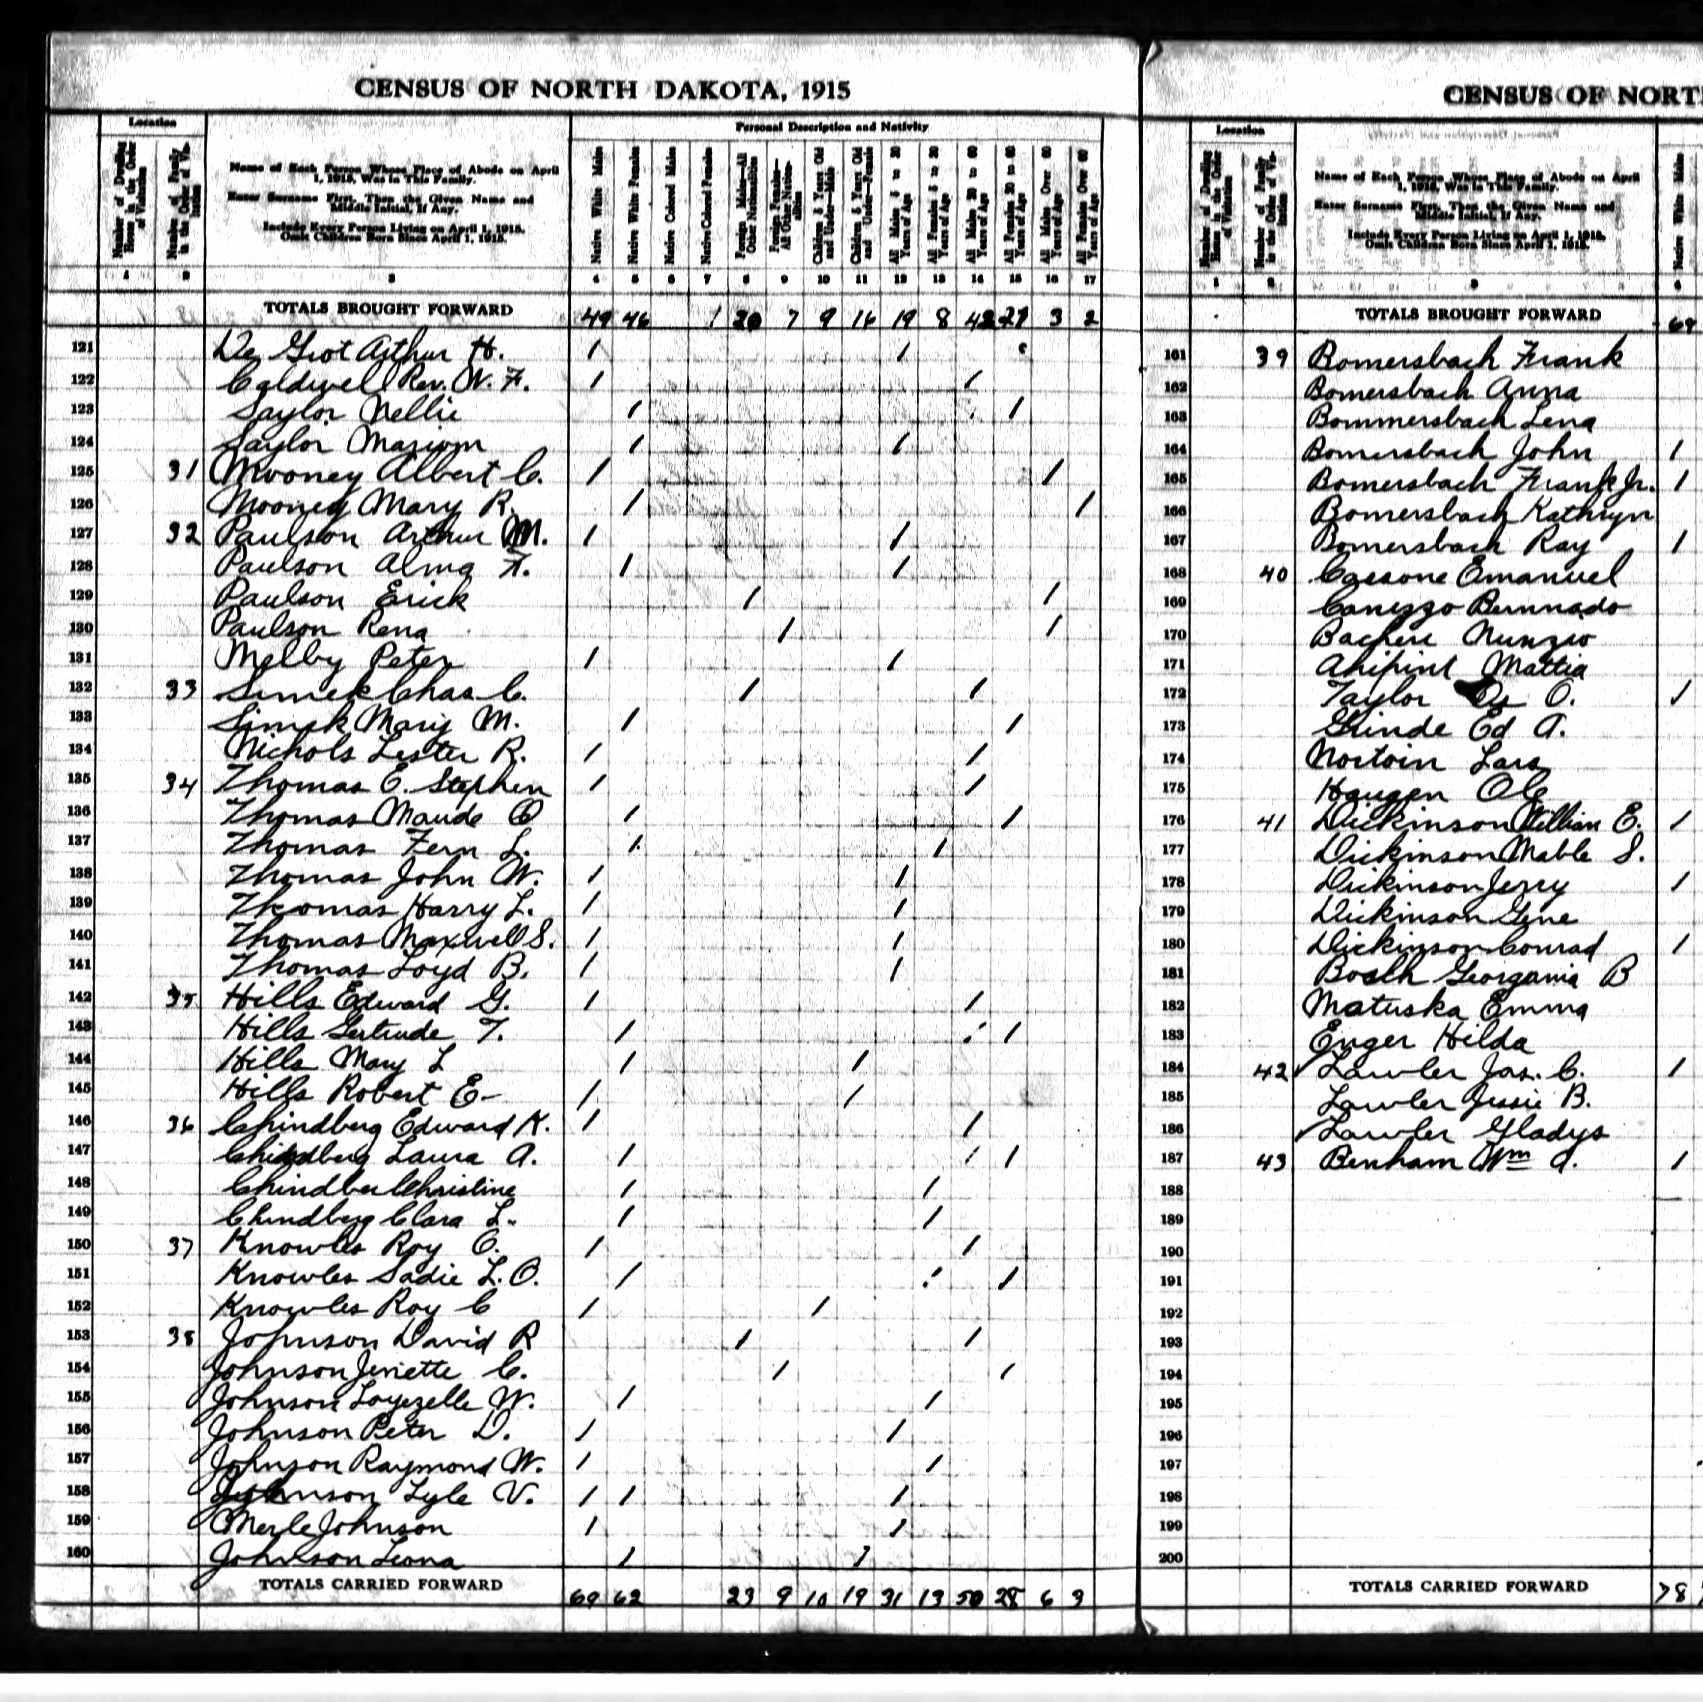 CENSUS OF NORTH DAKOTA, 1915
Location
Personal Description and Nativity
Number of Dwelling House in the Order of Visitation
Number of Family in the Order of Visitation
Name of Each Person Whose Place of Abode on April 1, 1915, Was in This Family.
Enter Surname First, Then the Given Name and Middle Initial, If Any.
Include Every Person Living on April 1, 1915. Omit Children Born Since April 1, 1915.
Native White Males
Native White Females
Native Colored Males
Native Colored Females
Foreign Males—All Other Nationalities
Foreign Females—All Other Nationalities
Children 5 Years Old and Under—Male
Children 5 Years Old and Under—Female
All Males 5 to 20 Years of Age
All Females 5 to 20 Years of Age
All Males 20 to 60 Years of Age
All Females 20 to 60 Years of Age
All Males Over 60 Years of Age
All Females Over 60 Years of Age
1 2 3 4 5 6 7 8 9 10 11 12 13 14 15 16 17
TOTALS BROUGHT FORWARD 49 46 1 20 7 9 16 19 8 42 27 3 2
121 De Grot Arthur H. / /
122 Caldwell Rev. W. F. / /
123 Saylor Nellie / /
124 Saylor Marion / /
125 31 Mooney Albert C. / /
126 Mooney Mary R. / /
127 32 Paulson Arthur M. / /
128 Paulson Alma F. / /
129 Paulson Erick / /
130 Paulson Rena / /
131 Melby Peter / /
132 33 Simek Chas C. / /
133 Simek Mary M. / /
134 Nichols Lester R. / /
135 34 Thomas E. Stephen / /
136 Thomas Maude O / /
137 Thomas Fern L. / /
138 Thomas John W. / /
139 Thomas Harry L. / /
140 Thomas Maxwell S. / /
141 Thomas Loyd B. / /
142 35 Hills Edward G. / /
143 Hills Gertrude T. / /
144 Hills Mary L / /
145 Hills Robert E- / /
146 36 Chindberg Edward K. / /
147 Chindberg Laura A. / /
148 Chindber Christine / /
149 Chindberg Clara L. / /
150 37 Knowles Roy C. / /
151 Knowles Sadie L. O. / /
152 Knowles Roy C / /
153 38 Johnson David R / /
154 Johnson Jeniette C. / /
155 Johnson Loyezelle W. / /
156 Johnson Peter D. / /
157 Johnson Raymond W. / /
158 Johnson Lyle V. / / /
159 Merle Johnson / /
160 Johnson Leona / /
TOTALS CARRIED FORWARD 69 62 23 9 10 19 31 13 50 28 6 3
CENSUS OF NORT
Location
Number of Dwelling House in the Order of Visitation
Number of Family in the Order of Visitation
Name of Each Person Whose Place of Abode on April 1, 1915, Was in This Family.
Enter Surname First, Then the Given Name and Middle Initial, If Any.
Include Every Person Living on April 1, 1915. Omit Children Born Since April 1, 1915.
Native White Males
1 2 3 4
TOTALS BROUGHT FORWARD 69
161 39 Bomersbach Frank
162 Bomersbach Anna
163 Bommersbach Lena
164 Bomersbach John /
165 Bomersbach Frank Jr. /
166 Bomersbach Kathryn
167 Bomersbach Ray /
168 40 Emanuel
169 Canizzo
170 Nunzio
171 Mattia
172 Taylor O. /
173 Grinde Ed A.
174 Lars
175 Haugen Ole
176 41 Dickinson William E. /
177 Dickinson Mable S.
178 Dickinson Jerry /
179 Dickinson Gene
180 Dickinson Conrad /
181 Georgania B
182 Matuska Emma
183 Enger Hilda
184 42 Lawler Jas. C. /
185 Lawler Jessie B.
186 Lawler Gladys
187 43 Benham Wm A. /
188
189
190
191
192
193
194
195
196
197
198
199
200
TOTALS CARRIED FORWARD 78